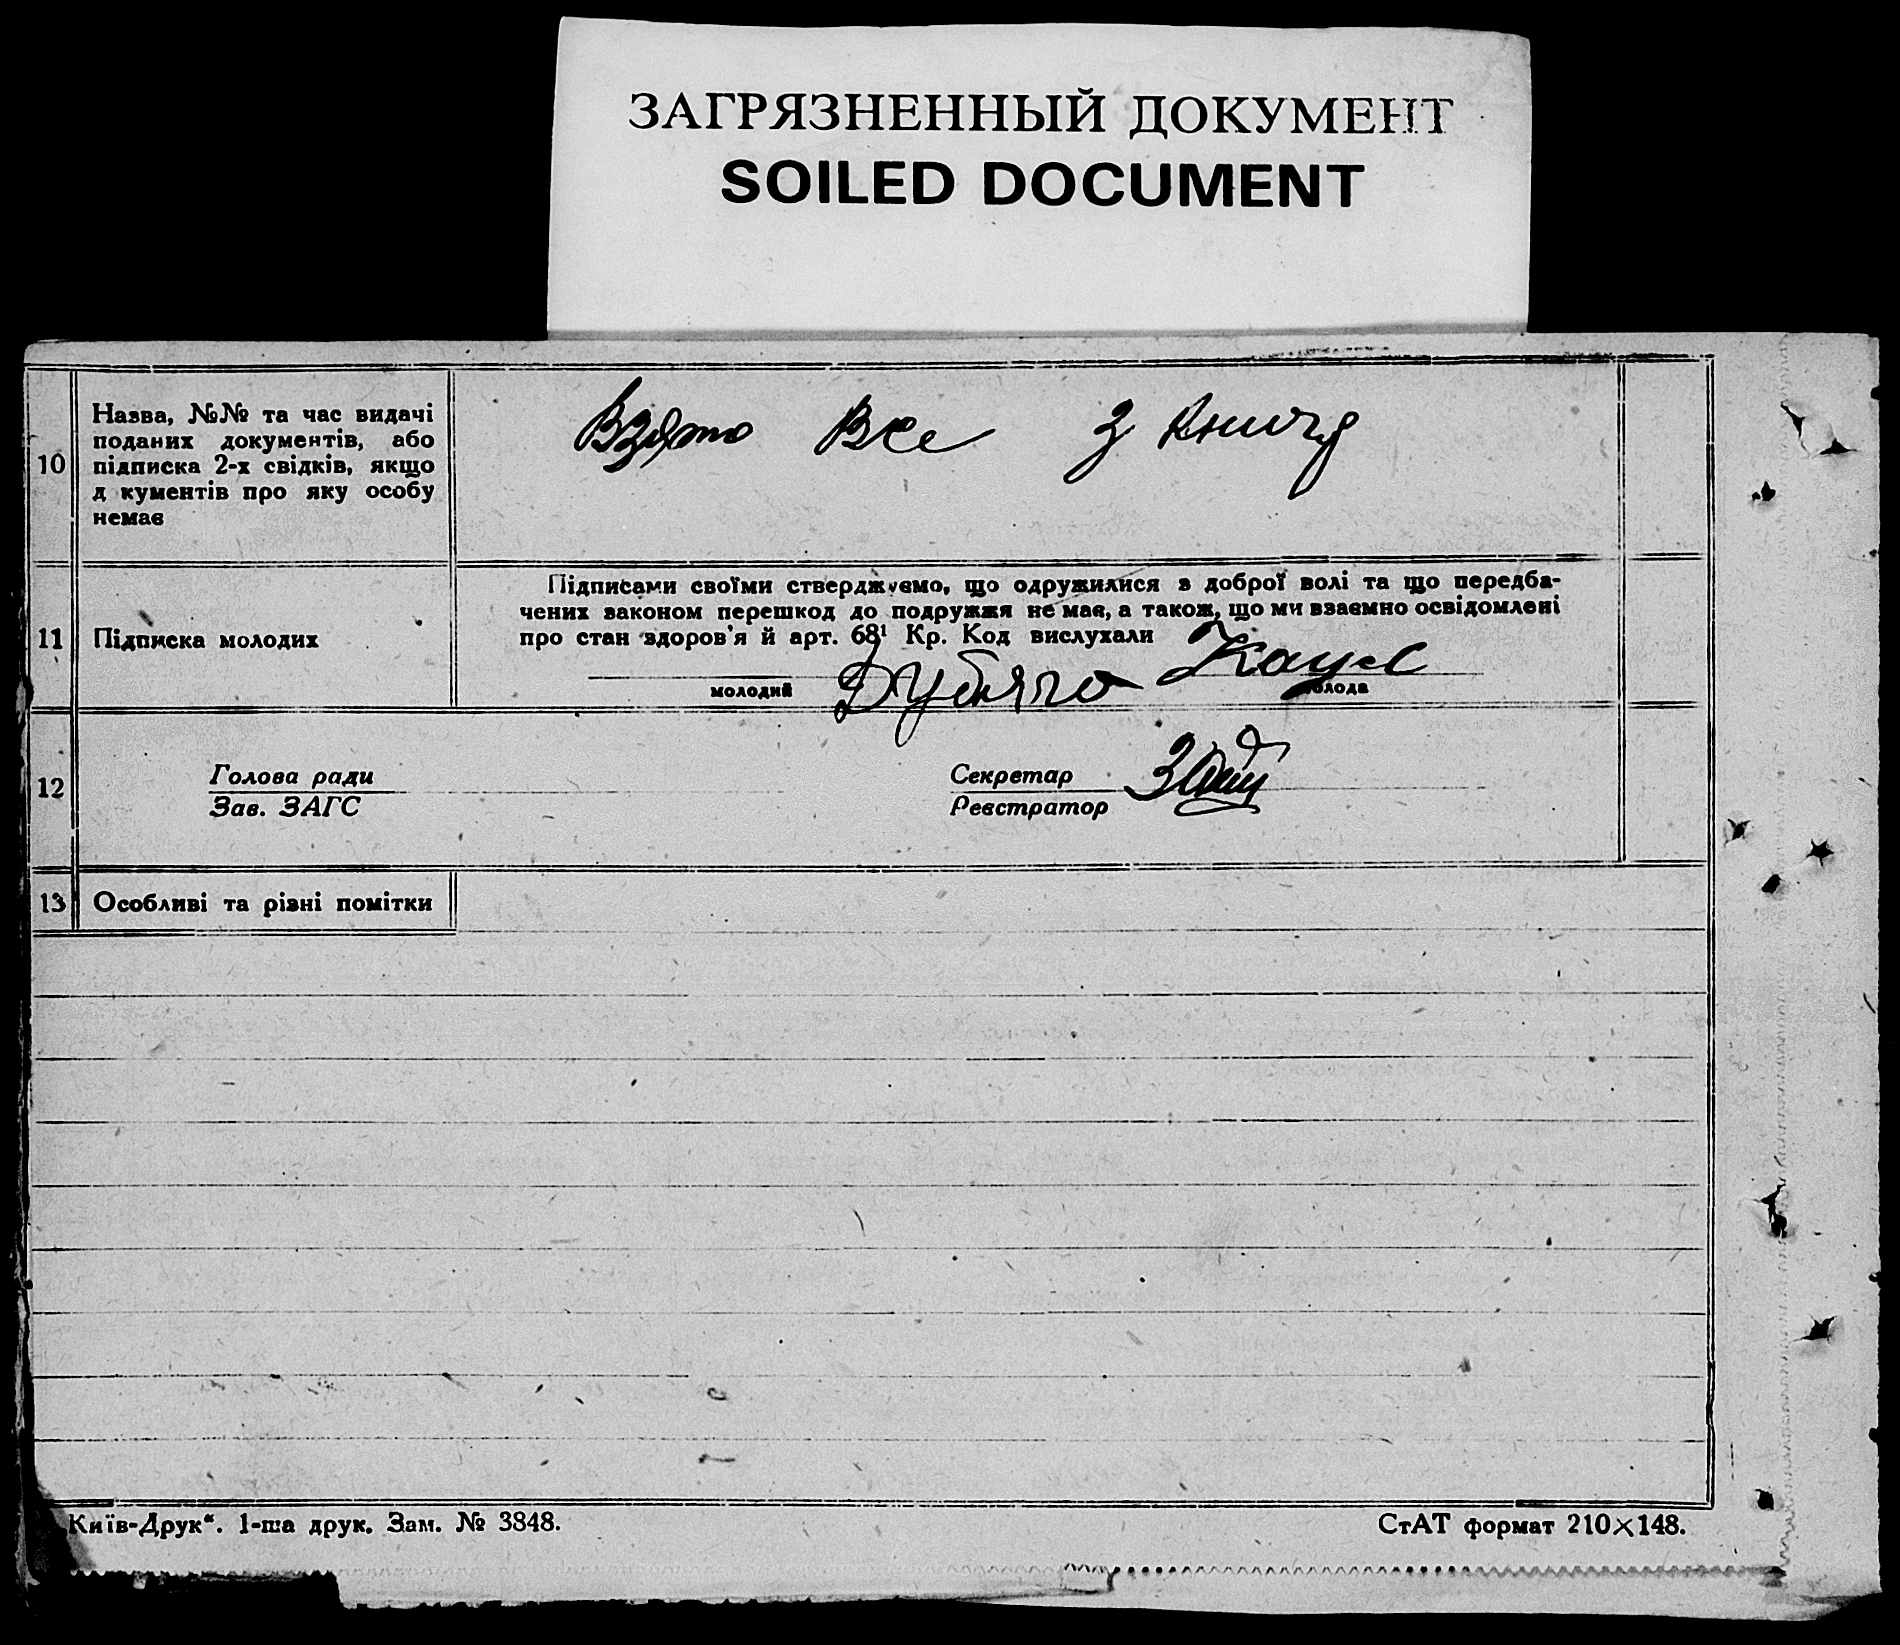 ЗАГРЯЗНЕННЫЙ ДОКУМЕНТ
SOILED DOCUMENT
10
Назва, №№ та час видачі
поданих документів, або
підписка 2-х свідків, якщо
д кументів про яку особу
немає
Взято все з книги
11
Підписка молодих
Підписами своїми стверджуємо, що одружилися з доброї волі та що передба-
чених законом перешкод до подружжя не має, а також, що ми взаємно освідомлені
про стан здоров'я й арт. 68¹ Кр. Код вислухали
молодий
молода
12
Голова ради
Зав. ЗАГС
Секретар
Реєстратор
13
Особливі та різні помітки
Київ-Друк". 1-ша друк. Зам. № 3848.
СтАТ формат 210×148.